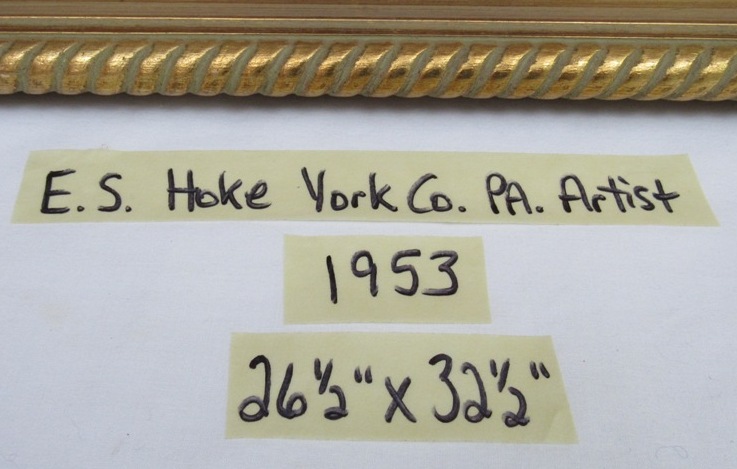 E.S. Hoke York Co. PA. Artist
1953
26½" x 32½"